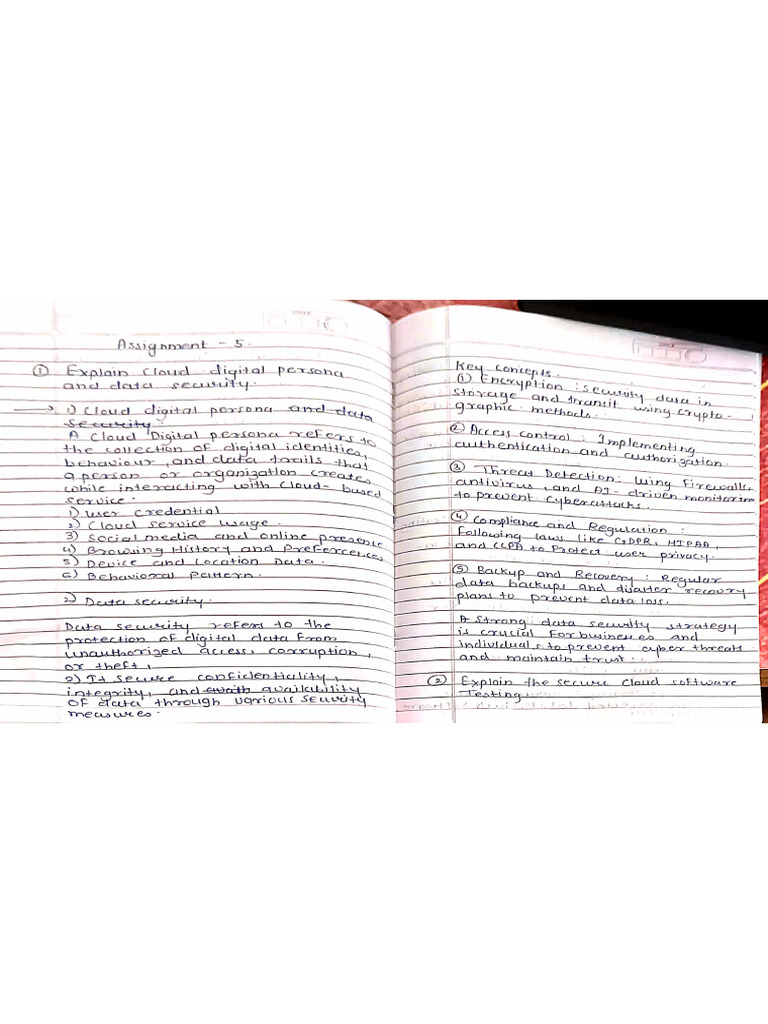 Assignment - 5.
① Explain cloud digital persona
and data security.
→ 1) Cloud digital persona and data
security.
A Cloud Digital persona refers to
the collection of digital identities,
behaviour, and data trails that
a person or organization creates
while interacting with cloud-based
service.
1) user credential
2) Cloud service usage.
3) Social media and online presence
4) Browsing History and Preferences
5) Device and Location Data.
6) Behavioral Pattern.
2) Data security.
Data security refers to the
protection of digital data from
unauthorized access, corruption,
or theft,
2) It secure confidentiality,
integrity, and availability
of data through various security
measures.
Key concepts.
① Encryption : security data in
storage and transit using crypto-
graphic methods.
② Access control : Implementing
authentication and authorization.
③ Threat Detection: Using firewalls,
antivirus, and AI-driven monitoring
to prevent cyberattacks.
④ Compliance and Regulation :
Following laws like GDPR, HIPAA,
and CCPA to Protect user privacy.
⑤ Backup and Recovery : Regular
data backups and disaster recovery
plans to prevent data loss.
A strong data security strategy
is crucial for businesses and
individuals to prevent cyber threats
and maintain trust.
② Explain the secure cloud software
Testing